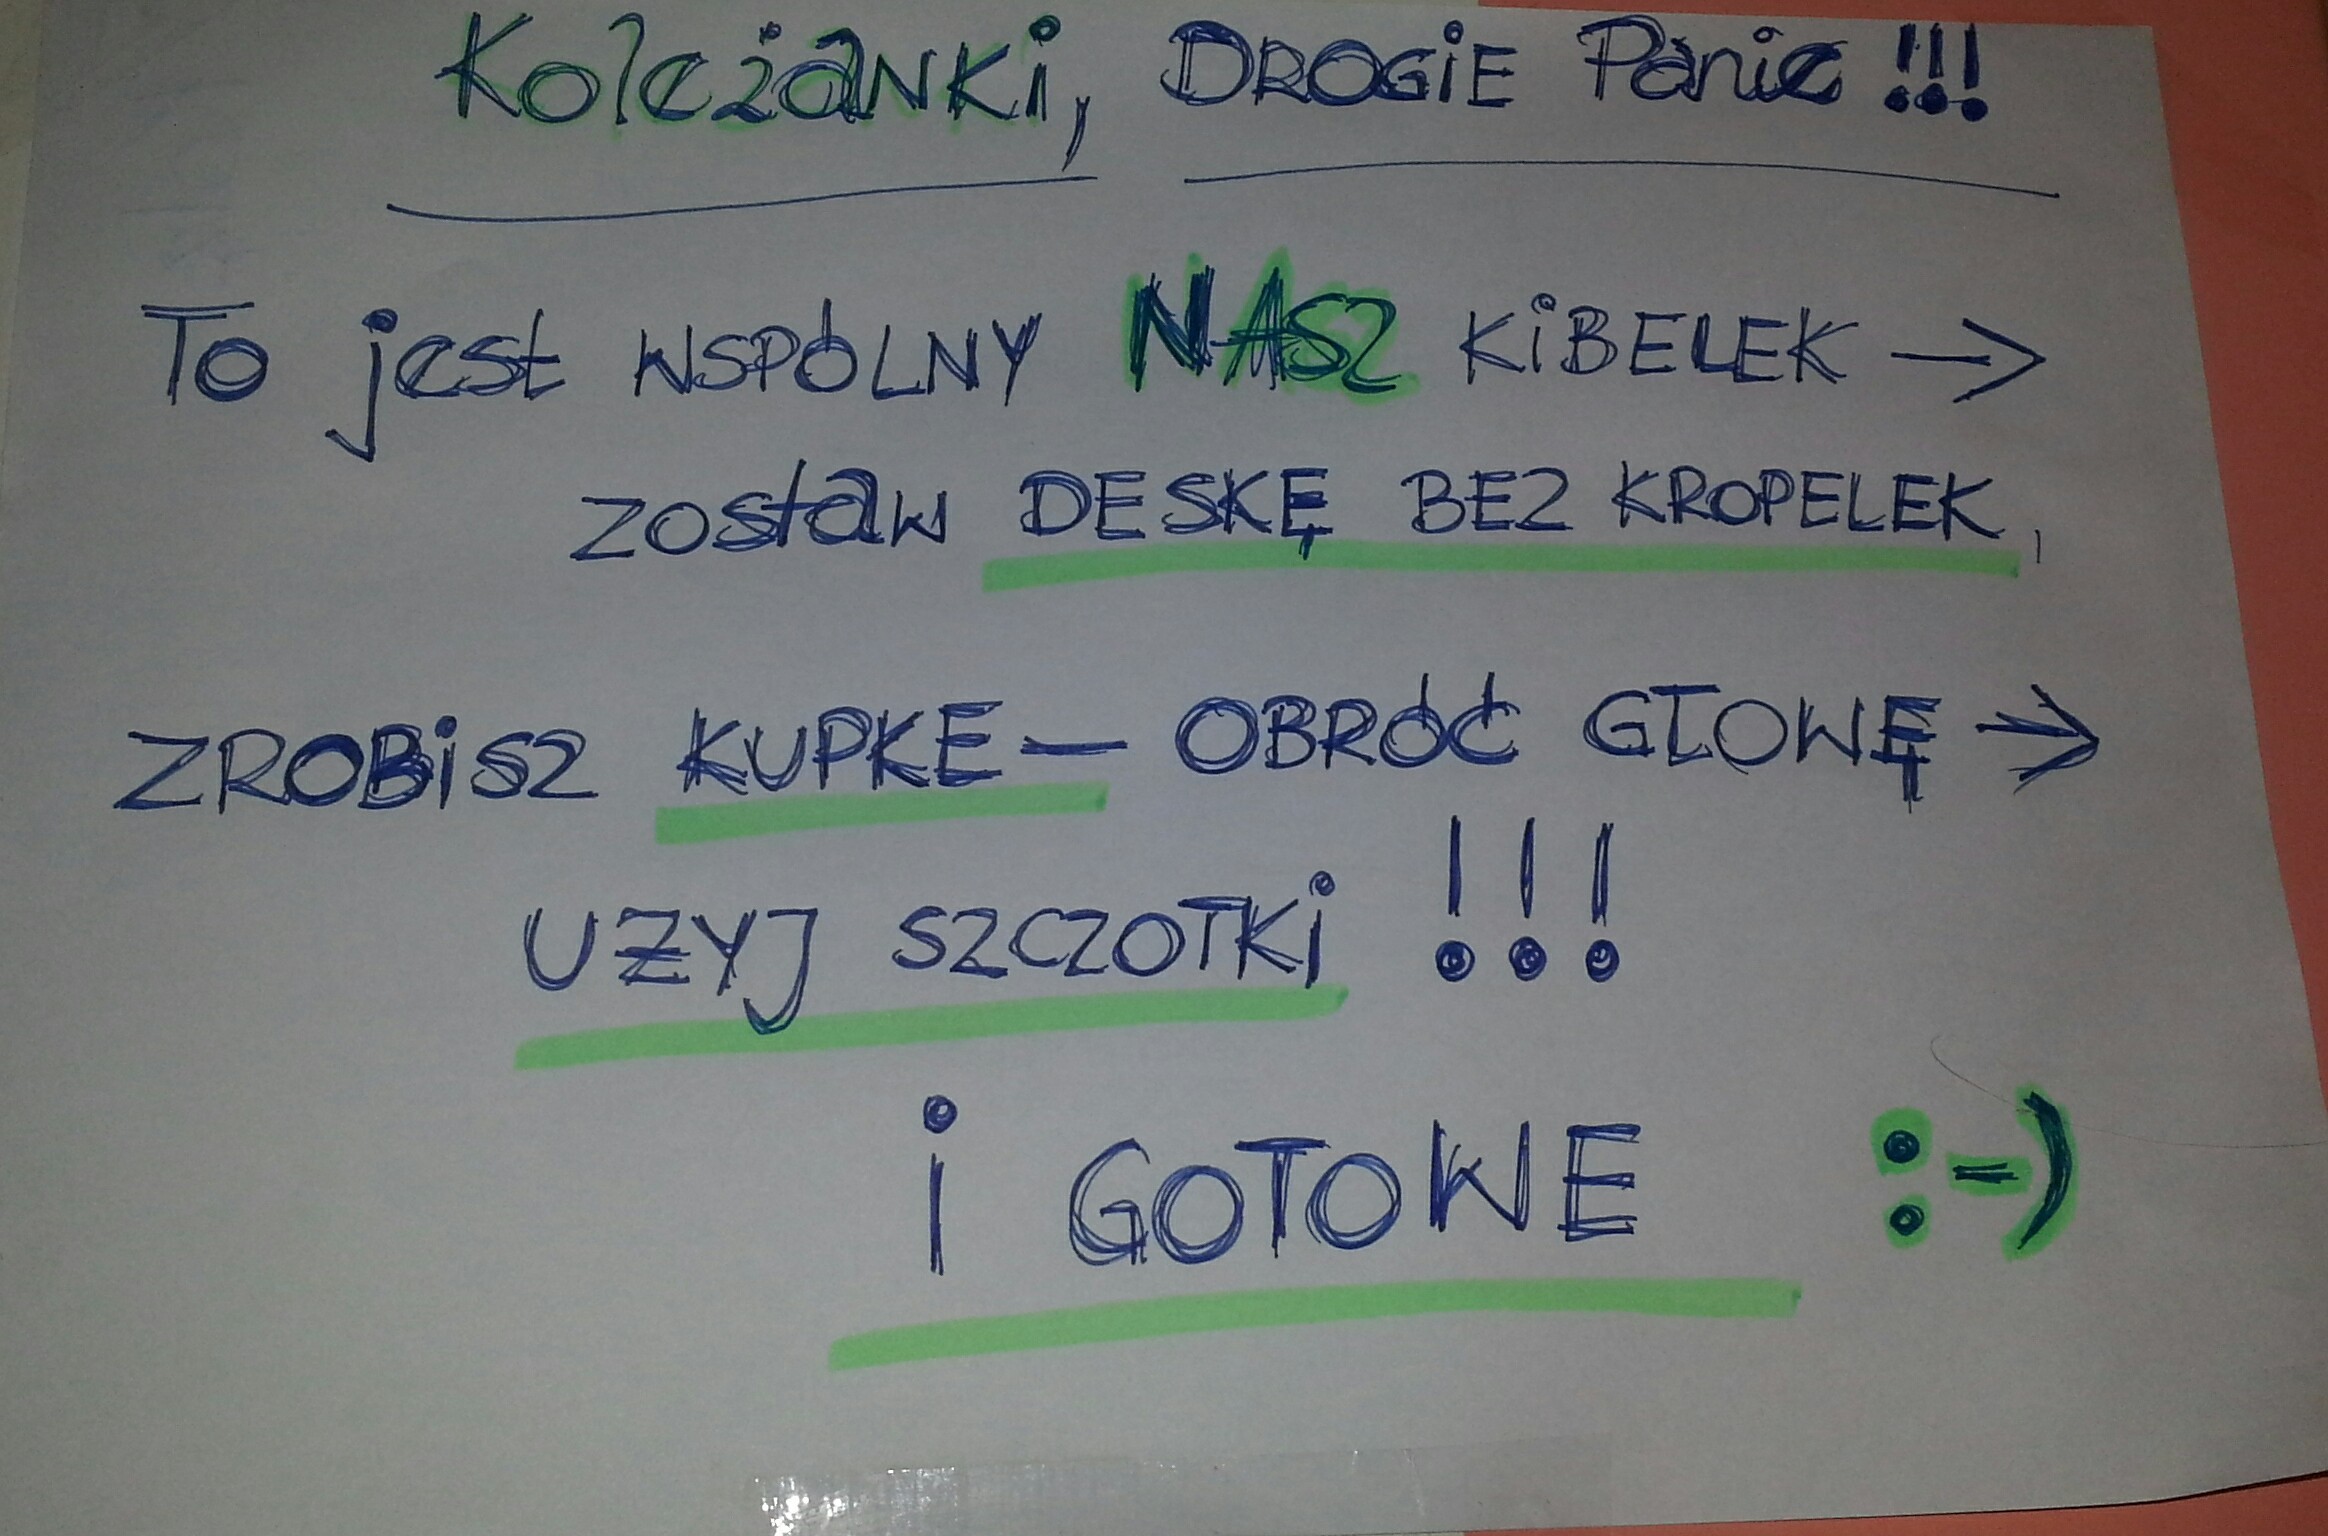 Koleżanki, DROGIE Panie !!!
To jest WSPÓLNY NASZ KiBELEK →
zostaw DESKĘ BEZ KROPELEK,
ZROBiSZ KUPKE — OBRÓĆ GŁOWĘ →
UŻYJ SZCZOTKi !!!
i GOTOWE :-)